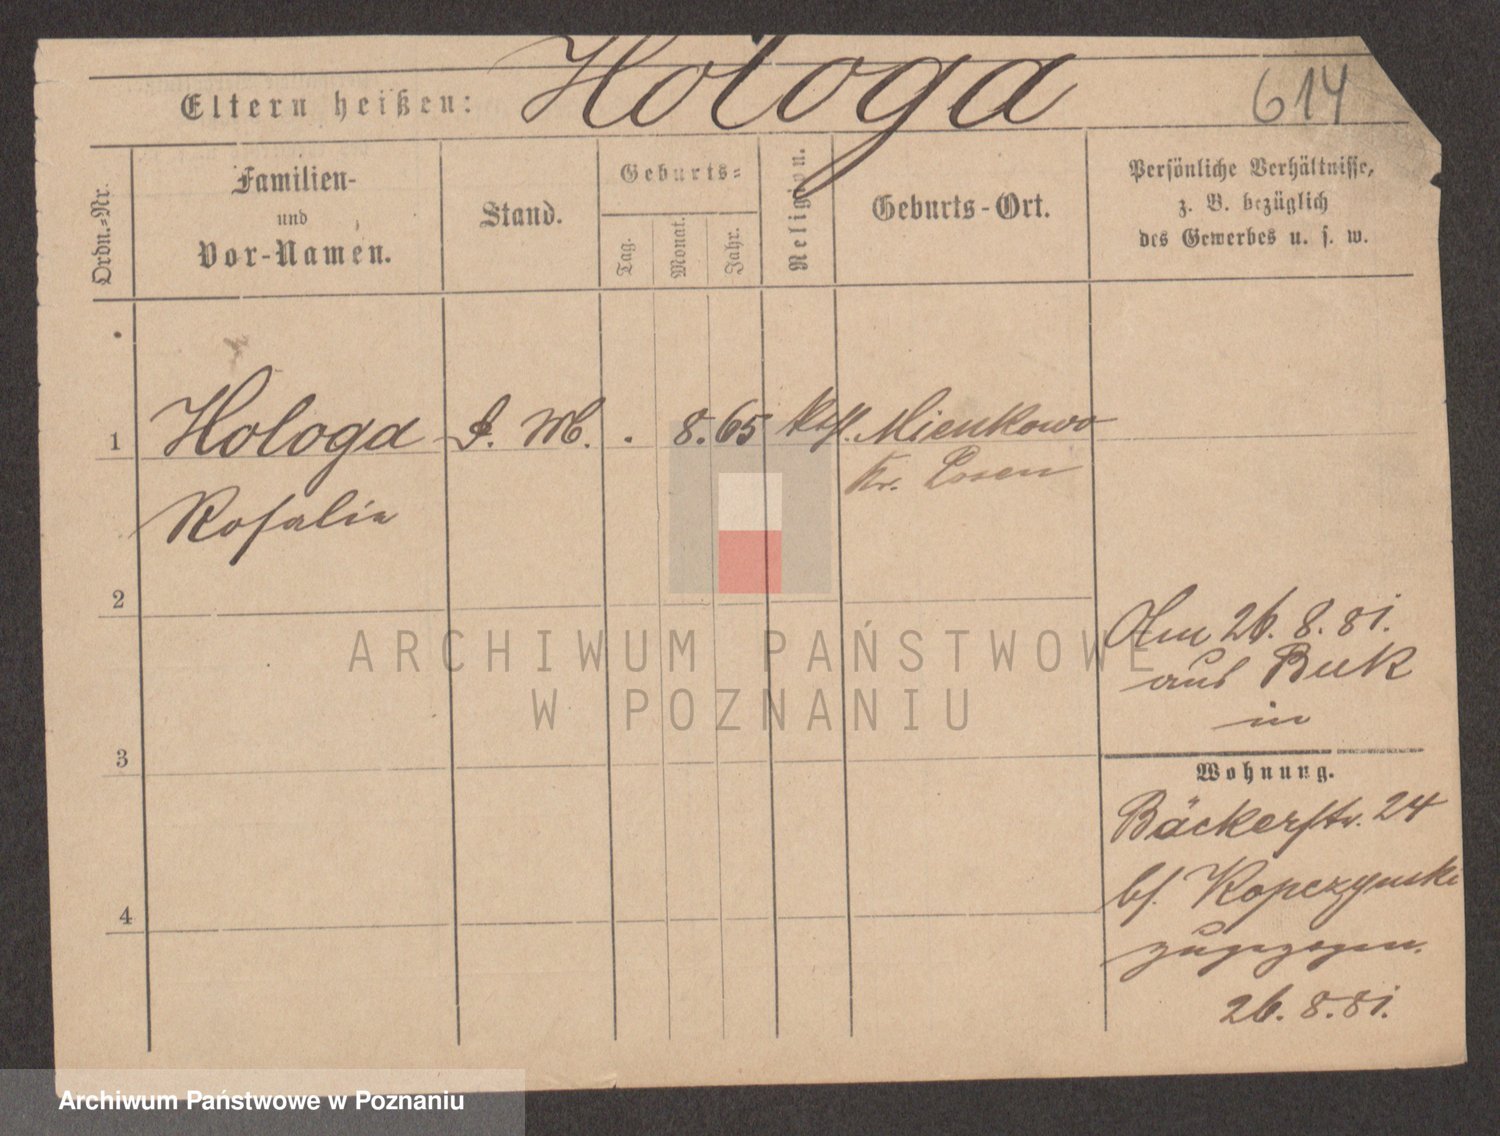 Hologa
614
Eltern heißen:
Ordn.-Nr.
Familien-
und
Vor-Namen.
Stand.
Geburts-
Tag.
Monat.
Jahr.
Religion.
Geburts-Ort.
Persönliche Verhältnisse,
z. B. bezüglich
des Gewerbes u. s. w.
1
Hologa D. M. . 8. 65 kath. Mienkowo
Kr. Posen
Rosalie
2
Am 26. 8. 81.
aus Buk
in
3
Wohnung.
Bäckerstr. 24
bf. Kopczynski
4
zugezogen.
26. 8. 81.
ARCHIWUM PAŃSTWOWE
W POZNANIU
Archiwum Państwowe w Poznaniu